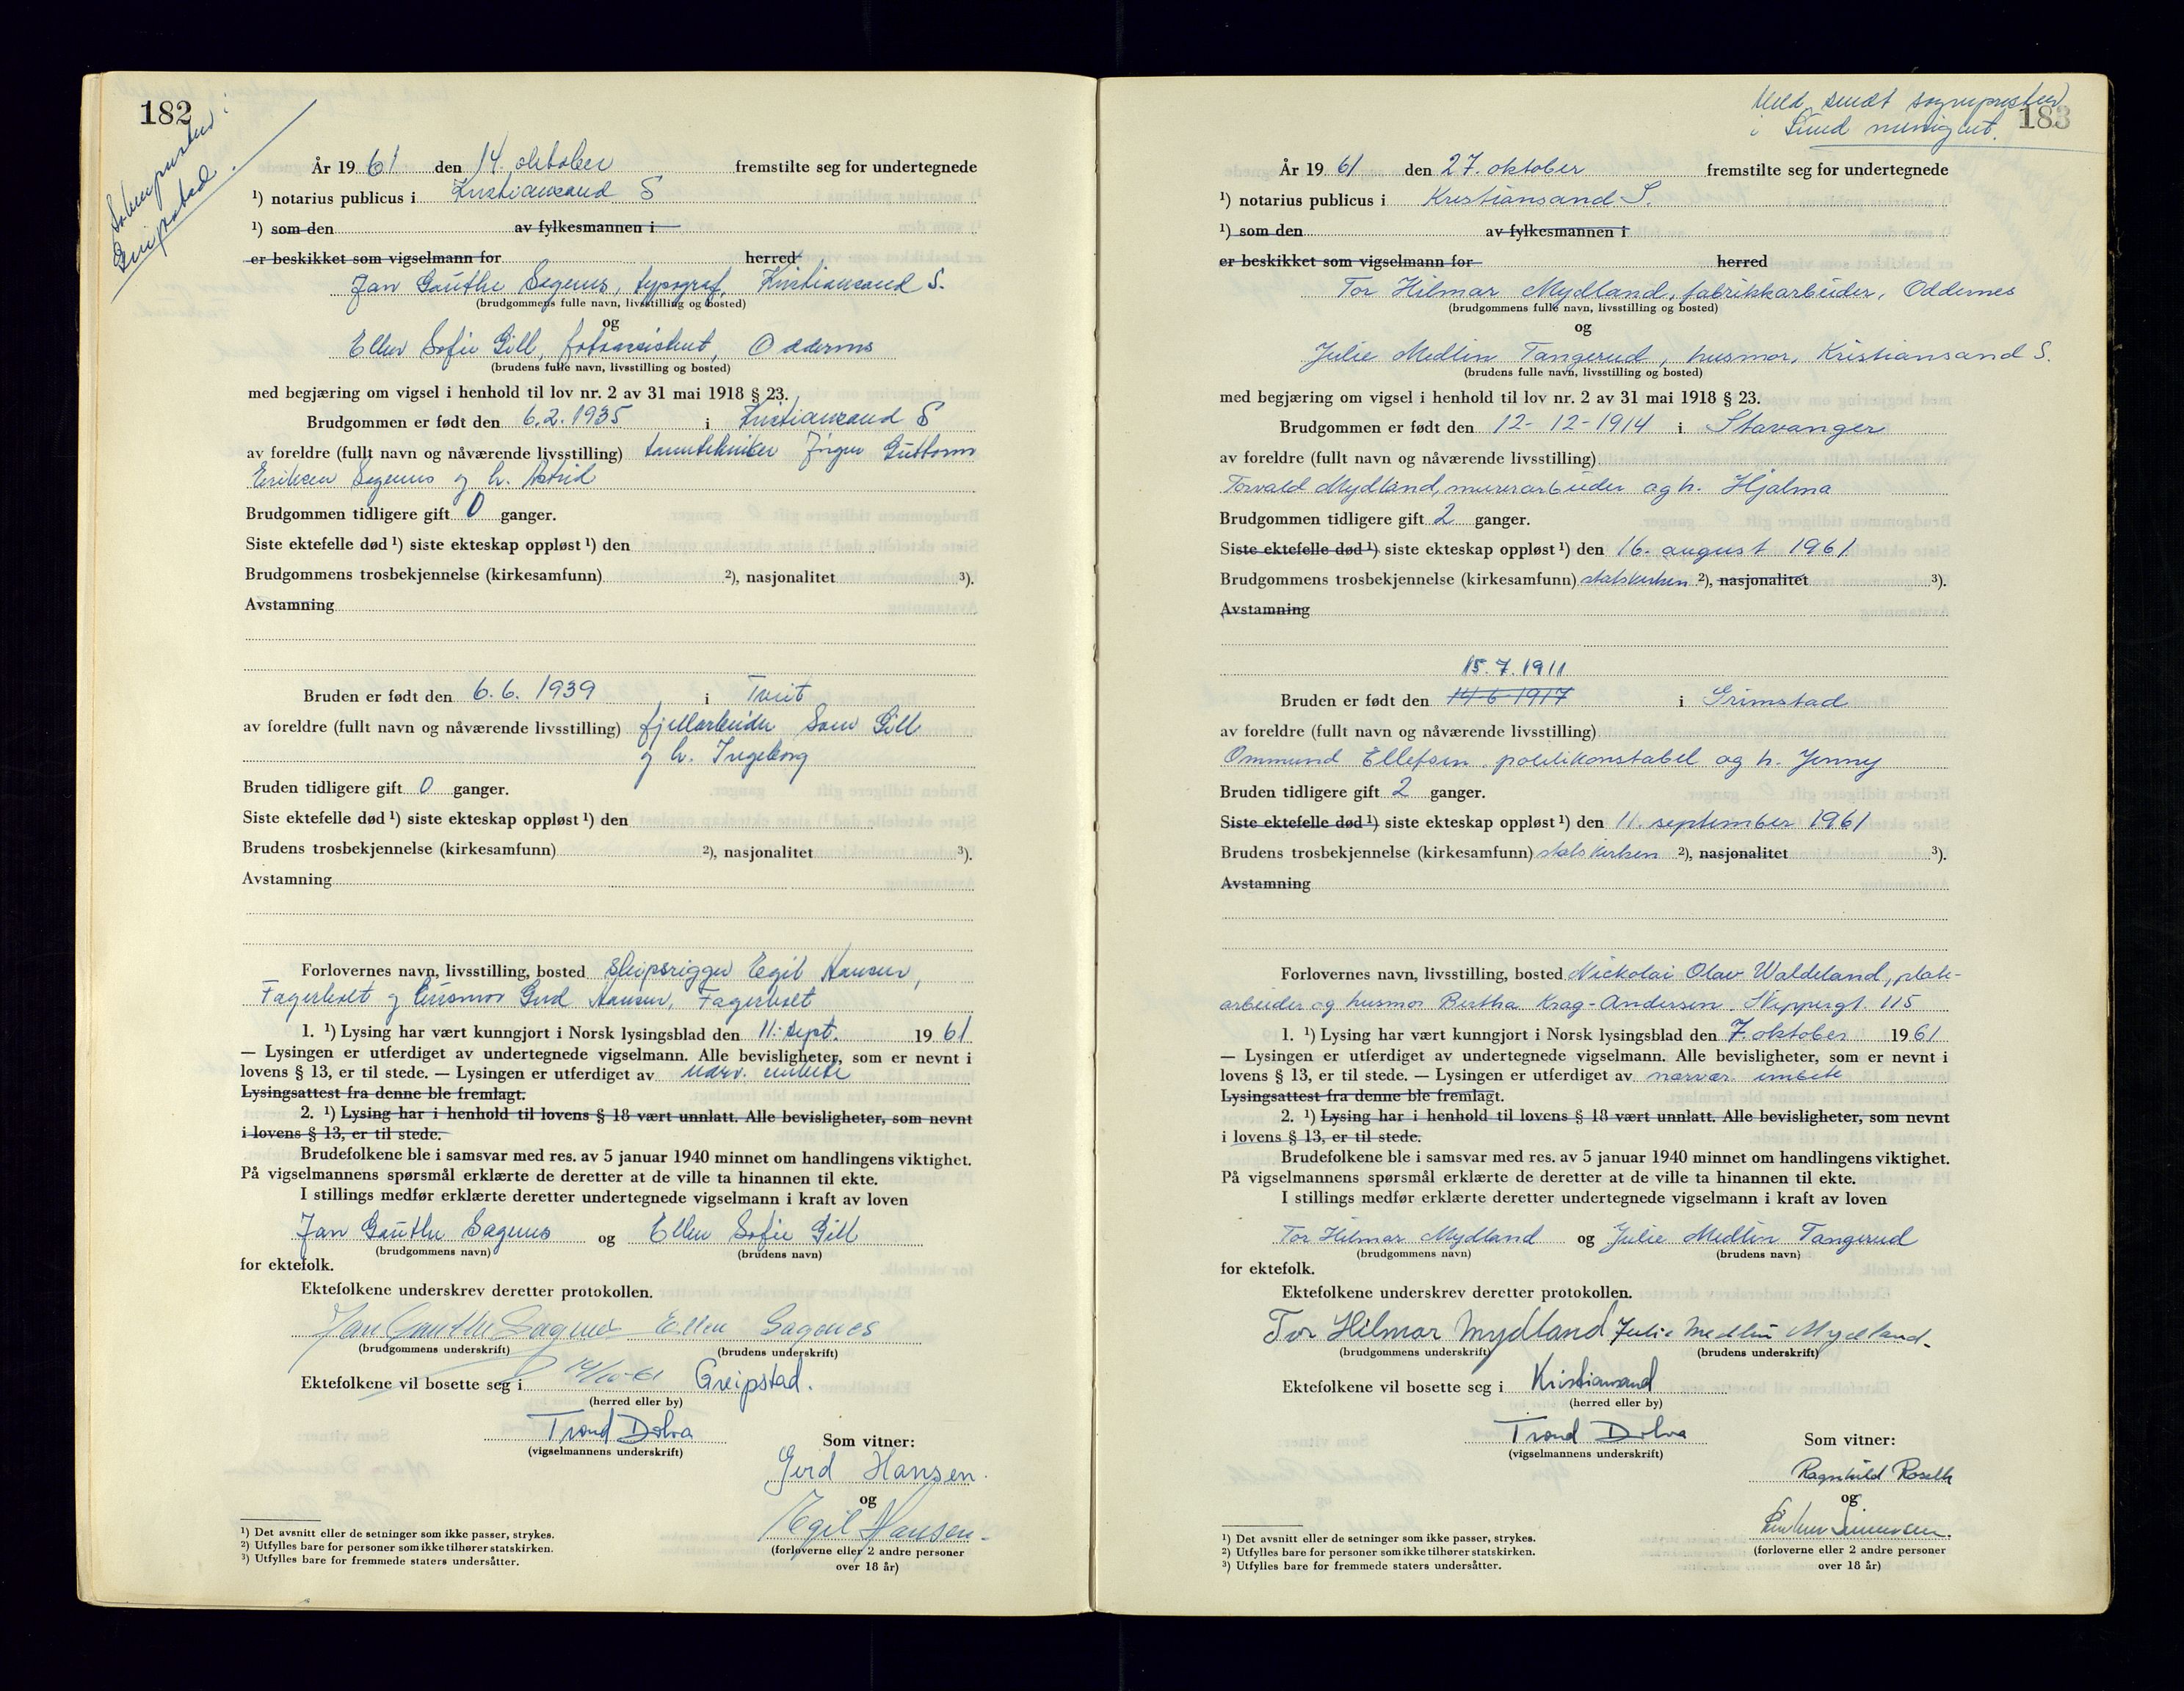 182
Soknepresten i
Greipstad.
År 1961 den 14. oktober fremstilte seg for undertegnede
¹) notarius publicus i Kristiansand S
¹) som den av fylkesmannen i
er beskikket som vigselmann for herred
Jan Gauthe Sagenes, typograf, Kristiansand S.
(brudgommens fulle navn, livsstilling og bosted)
og
Ellen Sofie Gill, fotoassistent, Oddernes
(brudens fulle navn, livsstilling og bosted)
med begjæring om vigsel i henhold til lov nr. 2 av 31 mai 1918 § 23.
Brudgommen er født den 6.2.1935 i Kristiansand S
av foreldre (fullt navn og nåværende livsstilling) tanntekniker Jørgen Guttorm
Eriksen Sagenes og h. Astrid
Brudgommen tidligere gift 0 ganger.
Siste ektefelle død ¹) siste ekteskap oppløst ¹) den
Brudgommens trosbekjennelse (kirkesamfunn) ²), nasjonalitet ³).
Avstamning
Bruden er født den 6.6.1939 i Tveit
av foreldre (fullt navn og nåværende livsstilling) fjellarbeider Gill
og h. Ingeborg
Bruden tidligere gift 0 ganger.
Siste ektefelle død ¹) siste ekteskap oppløst ¹) den
Brudens trosbekjennelse (kirkesamfunn) ²), nasjonalitet ³).
Avstamning
Forlovernes navn, livsstilling, bosted skipsrigger Egil Hansen,
Fagerholt og husmor Gerd Hansen, Fagerholt
1. ¹) Lysing har vært kunngjort i Norsk lysingsblad den 11. sept. 1961
— Lysingen er utferdiget av undertegnede vigselmann. Alle bevisligheter, som er nevnt i
lovens § 13, er til stede. — Lysingen er utferdiget av nærv. embete
Lysingsattest fra denne ble fremlagt.
2. ¹) Lysing har i henhold til lovens § 18 vært unnlatt. Alle bevisligheter, som nevnt
i lovens § 13, er til stede.
Brudefolkene ble i samsvar med res. av 5 januar 1940 minnet om handlingens viktighet.
På vigselmannens spørsmål erklærte de deretter at de ville ta hinannen til ekte.
I stillings medfør erklærte deretter undertegnede vigselmann i kraft av loven
Jan Gauthe Sagenes og Ellen Sofie Gill
(brudgommens navn) (brudens navn)
for ektefolk.
Ektefolkene underskrev deretter protokollen.
Jan Gauthe Sagenes Ellen Sagenes
(brudgommens underskrift) (brudens underskrift)
Ektefolkene vil bosette seg i 14/10-61 Greipstad.
(herred eller by)
Trond Dolva
(vigselmannens underskrift)
Som vitner:
Gerd Hansen.
og
Egil Hansen.
(forloverne eller 2 andre personer
over 18 år)
¹) Det avsnitt eller de setninger som ikke passer, strykes.
²) Utfylles bare for personer som ikke tilhører statskirken.
³) Utfylles bare for fremmede staters undersåtter.
Meld. sendt sognepresten
i Lund menighet.
183
År 1961 den 27. oktober fremstilte seg for undertegnede
¹) notarius publicus i Kristiansand S.
¹) som den av fylkesmannen i
er beskikket som vigselmann for herred
Tor Hilmar Mydland, fabrikkarbeider, Oddernes
(brudgommens fulle navn, livsstilling og bosted)
og
Julie Medlin Tangerud, husmor, Kristiansand S.
(brudens fulle navn, livsstilling og bosted)
med begjæring om vigsel i henhold til lov nr. 2 av 31 mai 1918 § 23.
Brudgommen er født den 12-12-1914 i Stavanger
av foreldre (fullt navn og nåværende livsstilling)
Torvald Mydland, murerarbeider og h. Hjalma
Brudgommen tidligere gift 2 ganger.
Siste ektefelle død ¹) siste ekteskap oppløst ¹) den 16. august 1961
Brudgommens trosbekjennelse (kirkesamfunn) statskirken ²), nasjonalitet ³).
Avstamning
15.7.1911
Bruden er født den 14-6-1917 i Grimstad
av foreldre (fullt navn og nåværende livsstilling)
Ommund Ellefsen politikonstabel og h. Jenny
Bruden tidligere gift 2 ganger.
Siste ektefelle død ¹) siste ekteskap oppløst ¹) den 11. september 1961
Brudens trosbekjennelse (kirkesamfunn) statskirken ²), nasjonalitet ³).
Avstamning
Forlovernes navn, livsstilling, bosted Nickolai Olav Waldeland, plate-
arbeider og husmor Bertha Krag-Andersen. Skippergt. 115
1. ¹) Lysing har vært kunngjort i Norsk lysingsblad den 7. oktober 1961
— Lysingen er utferdiget av undertegnede vigselmann. Alle bevisligheter, som er nevnt i
lovens § 13, er til stede. — Lysingen er utferdiget av nærvær. embete
Lysingsattest fra denne ble fremlagt.
2. ¹) Lysing har i henhold til lovens § 18 vært unnlatt. Alle bevisligheter, som nevnt
i lovens § 13, er til stede.
Brudefolkene ble i samsvar med res. av 5 januar 1940 minnet om handlingens viktighet.
På vigselmannens spørsmål erklærte de deretter at de ville ta hinannen til ekte.
I stillings medfør erklærte deretter undertegnede vigselmann i kraft av loven
Tor Hilmar Mydland og Julie Medlin Tangerud
(brudgommens navn) (brudens navn)
for ektefolk.
Ektefolkene underskrev deretter protokollen.
Tor Hilmar Mydland Julie Medlin Mydland.
(brudgommens underskrift) (brudens underskrift)
Ektefolkene vil bosette seg i Kristiansand
(herred eller by)
Trond Dolva
(vigselmannens underskrift)
Som vitner:
Ragnhild Roseth
og
(forloverne eller 2 andre personer
over 18 år)
¹) Det avsnitt eller de setninger som ikke passer, strykes.
²) Utfylles bare for personer som ikke tilhører statskirken.
³) Utfylles bare for fremmede staters undersåtter.